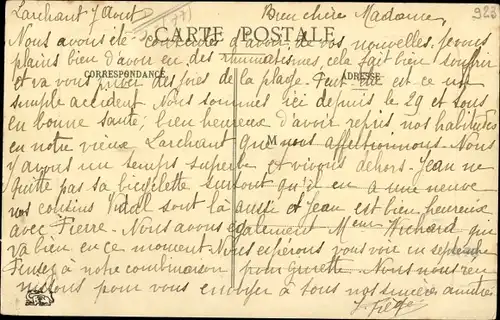 Larchant 7 Aout (77) Bien chère Madame, 923
CARTE POSTALE
Nous avons été contentes d'avoir de vos nouvelles. Je vous
plains bien d'avoir eu des rhumatismes, cela fait bien souffrir
CORRESPONDANCE ADRESSE
et va vous priver des joies de la plage. Peut être est ce un
simple accident. Nous sommes ici depuis le 29 et tous
en bonne santé; bien heureux d'avoir repris nos habitudes
en notre vieux Larchant que nous affectionnons. Nous
M
y avons un temps superbe et vivons dehors. Jean ne
quitte pas sa bicyclette surtout qu'il en a une neuve
nos cousins Vidal sont là aussi et Jean est bien heureux
avec Pierre. Nous avons également Mme Richard qui
va bien en ce moment. Nous espérons vous voir en septembre
Pensez à notre combinaison pour Ginette. Nous nous réu
nissons pour vous envoyer à tous nos sincères amitiés